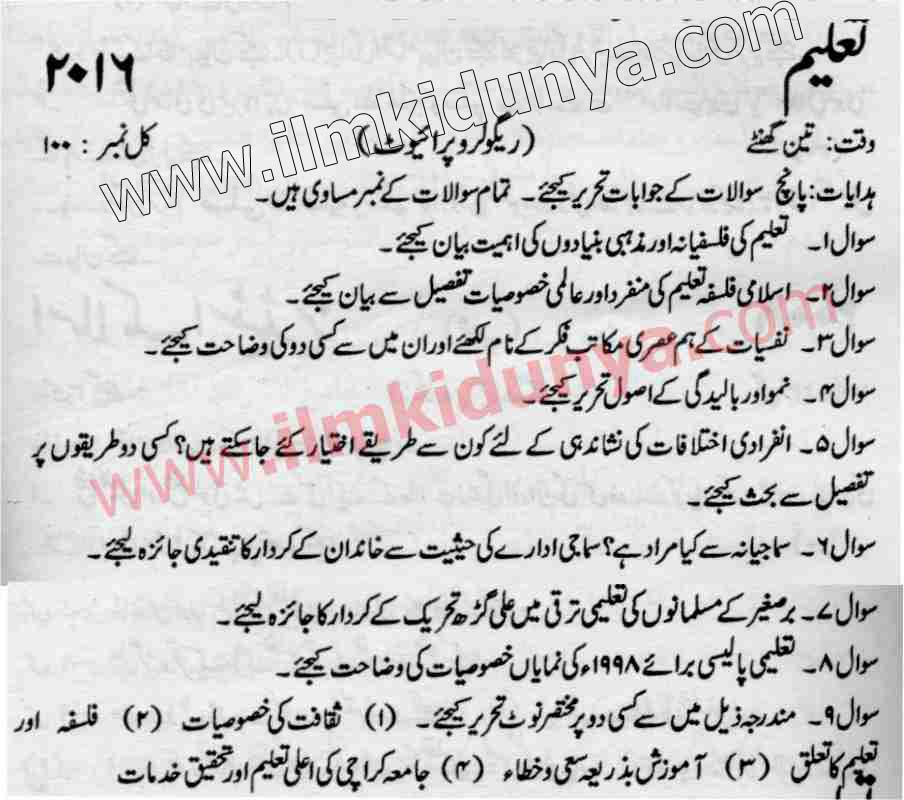 تعلیم
۲۰۱۶
www.ilmkidunya.com
وقت: تین گھنٹے (ریگولر و پرائیوٹ) کل نمبر: ۱۰۰
ہدایات: پانچ سوالات کے جوابات تحریر کیجئے۔ تمام سوالات کے نمبر مساوی ہیں۔
سوال ۱۔ تعلیم کی فلسفیانہ اور مذہبی بنیادوں کی اہمیت بیان کیجئے۔
سوال ۲۔ اسلامی فلسفہ تعلیم کی منفرد اور عالمی خصوصیات تفصیل سے بیان کیجئے۔
سوال ۳۔ نفسیات کے ہم عصری مکاتب فکر کے نام لکھئے اور ان میں سے کسی دو کی وضاحت کیجئے۔
www.ilmkidunya.com
سوال ۴۔ نمو اور بالیدگی کے اصول تحریر کیجئے۔
سوال ۵۔ انفرادی اختلافات کی نشاندہی کے لئے کون سے طریقے اختیار کئے جاسکتے ہیں؟ کسی دو طریقوں پر
تفصیل سے بحث کیجئے۔
سوال ۶۔ سماجیانہ سے کیا مراد ہے؟ سماجی ادارے کی حیثیت سے خاندان کے کردار کا تنقیدی جائزہ لیجئے۔
سوال ۷۔ برصغیر کے مسلمانوں کی تعلیمی ترقی میں علی گڑھ تحریک کے کردار کا جائزہ لیجئے۔
سوال ۸۔ تعلیمی پالیسی برائے ۱۹۹۸ء کی نمایاں خصوصیات کی وضاحت کیجئے۔
سوال ۹۔ مندرجہ ذیل میں سے کسی دو پر مختصر نوٹ تحریر کیجئے۔ (۱) ثقافت کی خصوصیات (۲) فلسفہ اور
تعلیم کا تعلق (۳) آموزش بذریعہ سعی و خطاء (۴) جامعہ کراچی کی اعلیٰ تعلیم اور تحقیق خدمات